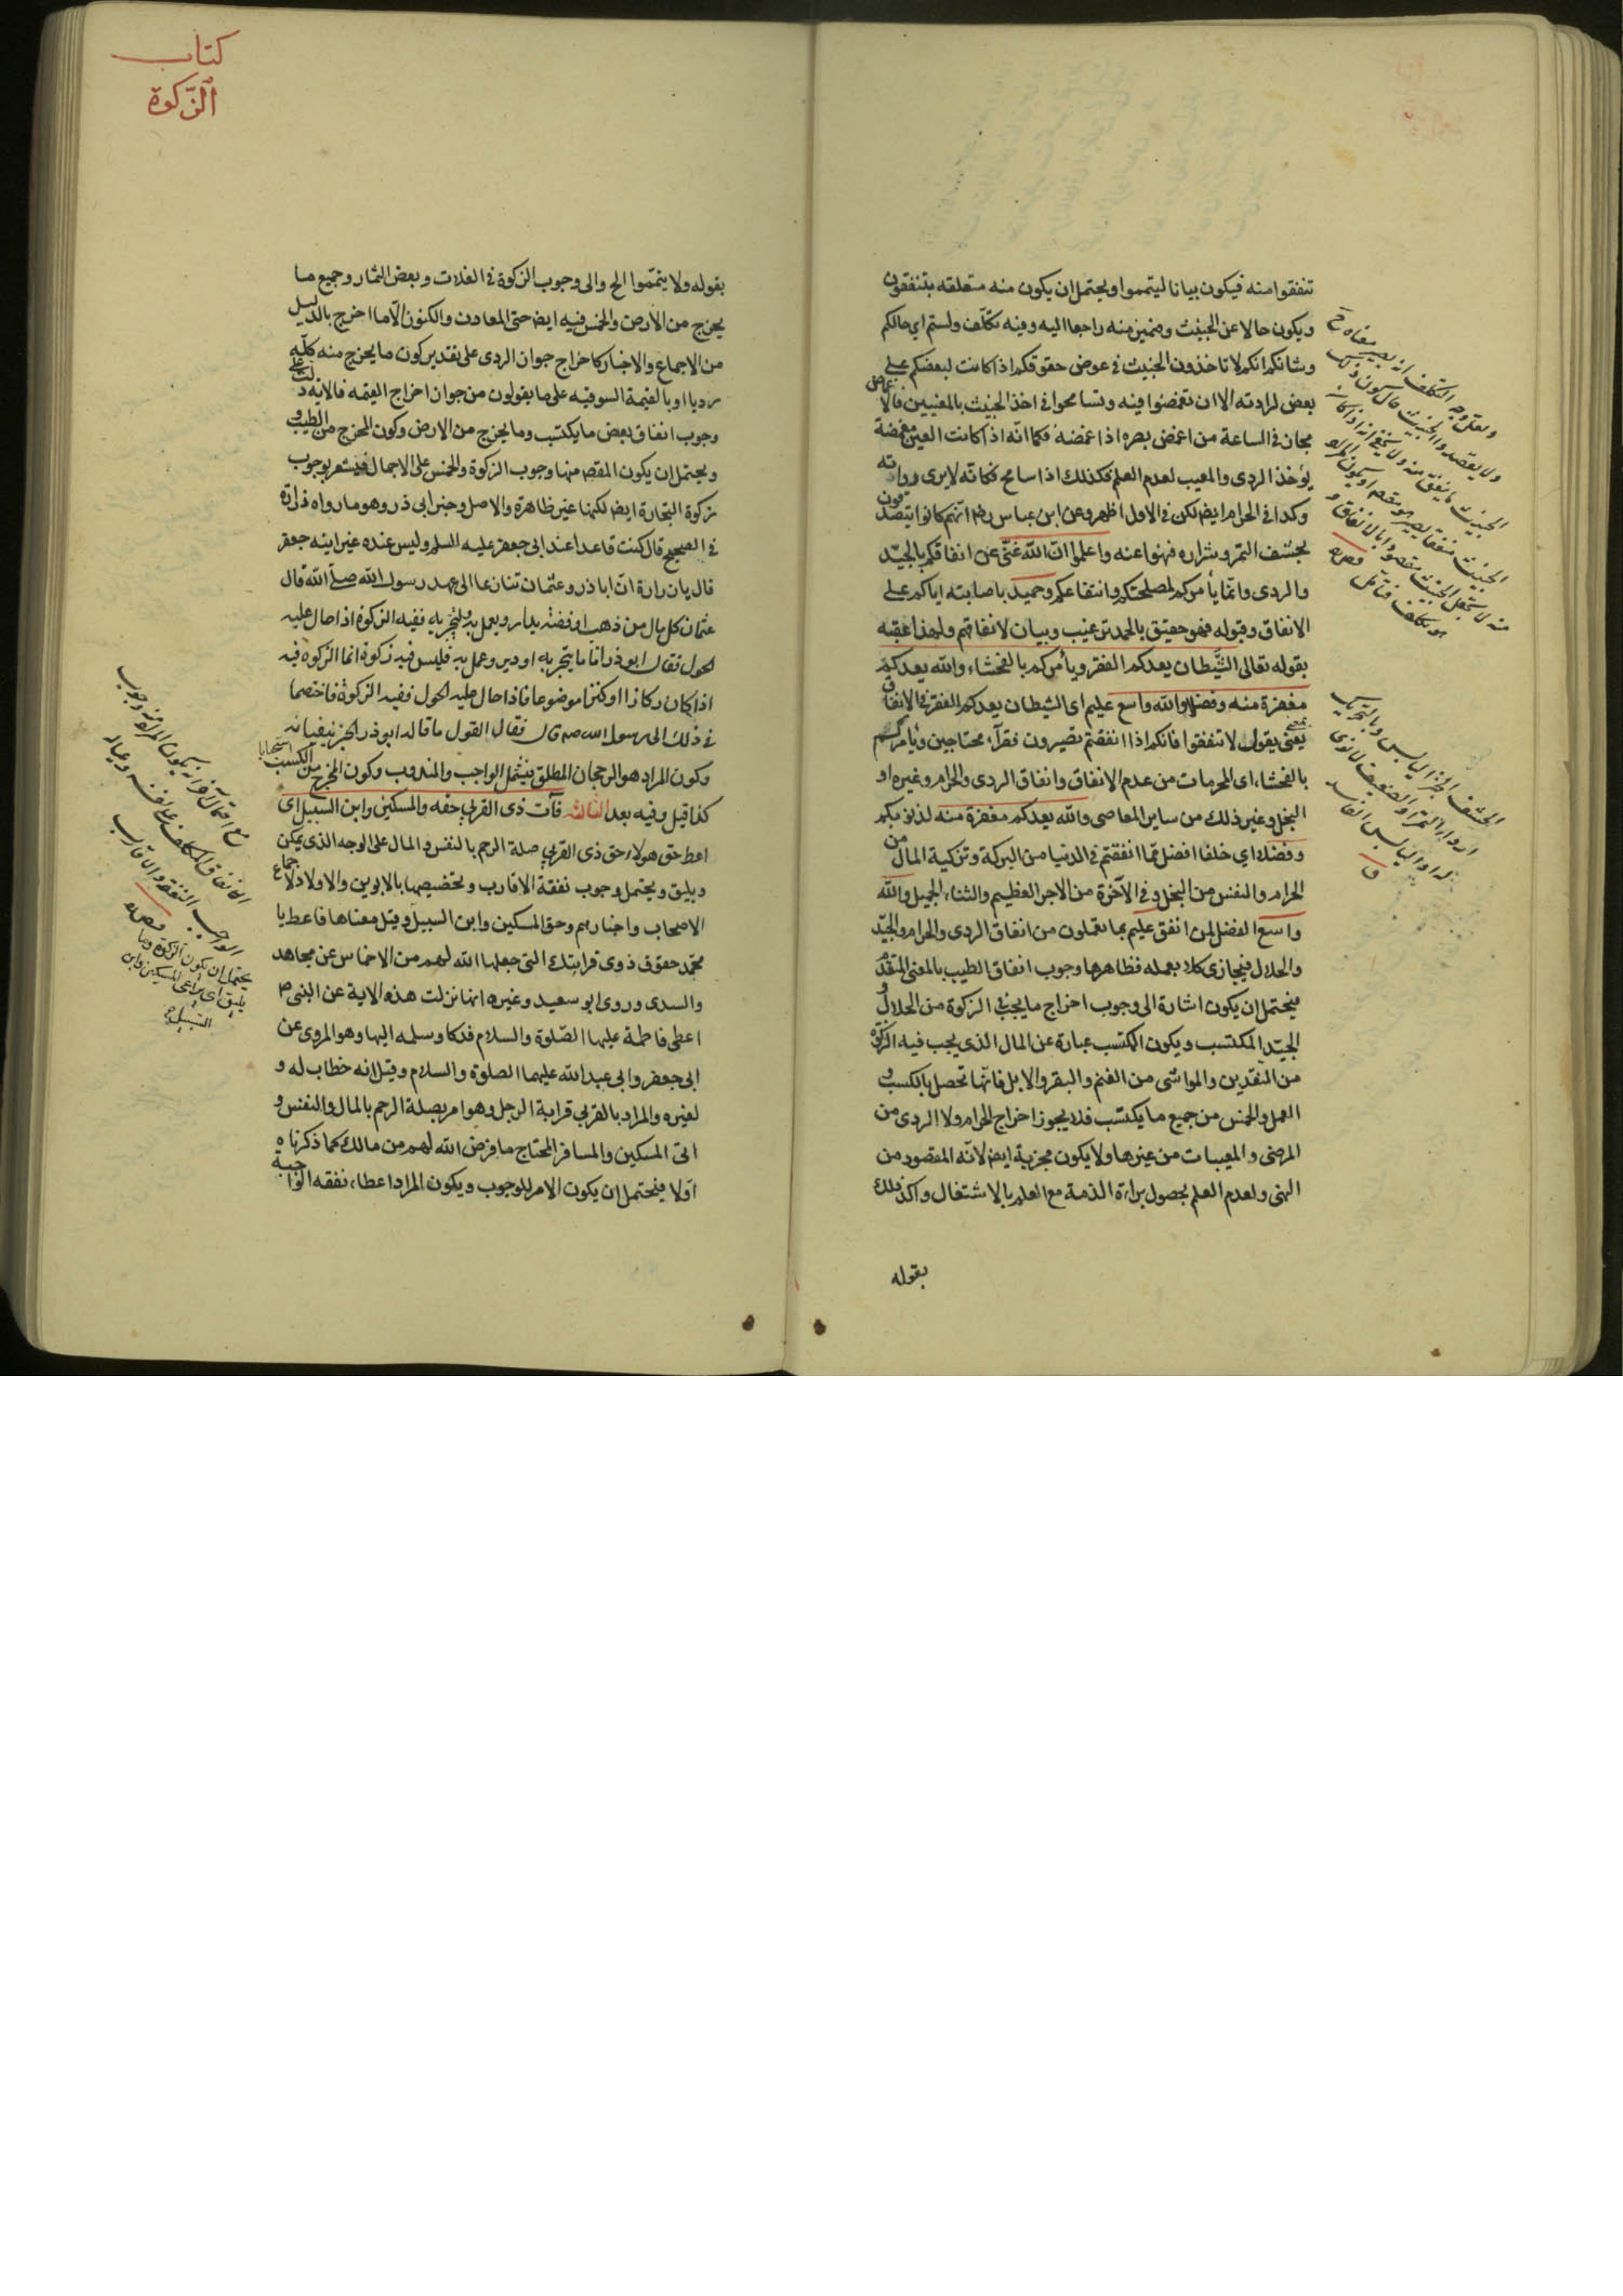 كتاب
الزكوة
تنفقوا منه فيكون بيانا ليتمموا ويحتمل ان يكون منه متعلقه بتنفقون
ويكون حالا عن الخبيث وضمير منه راجعا اليه وفيه تكلف ولستم اي حالكم
وشانكم انكم لا تاخذون الخبيث في عوض حقوقكم اذا كانت لبعضكم على
بعض لرادته الا ان تغمضوا فيه وتسامحوا في اخذ الخبيث بالمعنيين فالاغماض
مجاز في المساهلة من اغمض بصره اذا غمضه فكما انه اذا كانت العين مغمضة
يؤخذ الردى والمعيب لعدم العلم فكذلك اذا سامح فكانه لا يرى ردائته
وكذا في الحرام ايضا لكن في الاول اظهر وعن ابن عباس رض انهم كانوا يتصدقون
بحشف التمر وشراره فنهوا عنه واعلموا ان الله غني عن انفاقكم بالجيد
والردى وانما يأمركم لمصلحتكم وانتفاعكم وحميد باصابته اياكم على
الانفاق وقبوله فهو حقيق بالحمد ترغيب وبيان لانفاقهم ولهذا عقبه
بقوله تعالى الشيطان يعدكم الفقر ويأمركم بالفحشاء والله يعدكم
مغفرة منه وفضلا والله واسع عليم اي الشيطان يعدكم الفقر في الانفاق
يعني يقول لا تنفقوا فانكم اذا انفقتم تصيرون فقراء محتاجين ويأمركم
بالفحشاء اي المحرمات من عدم الانفاق وانفاق الردى والحرام وغيره او
البخل وغير ذلك من ساير المعاصى والله يعدكم مغفرة منه لذنوبكم
وفضلا اي خلفا افضل مما انفقتم في الدنيا من البركة وتزكية المال من
الحرام والنفس من البخل وفي الآخرة من الاجر العظيم والثناء الجميل والله
واسع الفضل لمن انفق عليم بما تعملون من انفاق الردى والحرام والجيد
والحلال فيجازى كلا بعمله فظاهرها وجوب انفاق الطيب بالمعنى المتقدم
فيحتمل ان يكون اشارة الى وجوب اخراج ما يجب في الزكوة من الحلال و
الجيد المكتسب ويكون المكتسب عبارة عن المال الذي يجب فيه الزكوة
من النقدين والمواشى من الغنم والبقر والابل فانها تحصل بالكسب و
العمل والخمس من جميع ما يكتسب فلا يجوز اخراج الحرام ولا الردى من
المرضى والمعيبات من غيرها ولا يكون مجزية ايضا لانه المقصود من
النهى ولعدم العلم بحصول براءة الذمة مع العلم بالاشتغال واكد ذلك
بقوله
بقوله ولا تيمموا الخ والى وجوب الزكوة في الغلات وبعض الثمار وجميع ما
يخرج من الارض والخمس فيه ايضا حتى المعادن والكنوز الا ما اخرج بالدليل
من الاجماع والاخبار كاخراج جواز الردى على تقدير كون ما يخرج منه كله
رديا او بالقيمة السوقيه على ما يقولون من جواز اخراج القيمه فالايه دلت على
وجوب انفاق بعض ما يكتسب وما يخرج من الارض وكون المخرج من الطيب
ويحتمل ان يكون المقصود منها وجوب الزكوة والخمس على الاجمال فيشعر بوجوب
زكوة التجارة ايضا لكنها غير ظاهرة والاصل وخبر ابي ذر وهو ما رواه زرارة
في الصحيح قال كنت قاعدا عند ابي جعفر عليه السلم وليس عنده غير ابنه جعفر
فقال يا زرارة ان اباذر وعثمان تنازعا الى عهد رسول الله صلى الله قال
عثمان كل مال من ذهب او فضة يدار ويعمل به ويتجر به ففيه الزكوة اذا حال عليه
الحول فقال ابوذر اما ما يتجر به او دير وعمل به فليس فيه زكوة انما الزكوة فيه
اذا كان ركازا او كنزا موضوعا فاذا حال عليه الحول ففيه الزكوة فاختصما
في ذلك الى رسول الله ص قال فقال القول ما قاله ابوذر
وكون المراد هو الرجحان المطلق فيشمل الواجب والمندوب وكون المخرج من الكسب استحبابا
كذا قيل وفيه بعد الثالثه فآت ذى القربى حقه والمسكين وابن السبيل اى
اعط حق هولاء حق ذى القربى صلة الرحم بالنفس والمال على الوجه الذى يمكن
ويليق ويحتمل وجوب نفقة الاقارب وتخصيصها بالابوين والاولاد لاجماع
الاصحاب واخبارهم وحق المسكين وابن السبيل وقيل معناها فاعط يا
محمد حقوق ذوى قرابتك التى جعلها الله لهم من الاخماس عن مجاهد
والسدى وروى ابو سعيد وغيره انها نزلت هذه الاية عن النبى ص
اعطى فاطمة عليها الصلوة والسلام فدكا وسلمه اليها وهو المروى عن
ابى جعفر وابى عبدالله عليهما الصلوة والسلام وقيل انه خطاب له و
لغيره والمراد بالقربى قرابة الرجل وهو امر بصلة الرحم بالمال والنفس و
اتى المسكين والمسافر المحتاج ما فرض الله لهم من مالك كما ذكرناه
اولا فيحتمل ان يكون الامر للوجوب ويكون المراد اعطاء نفقه الواجبة